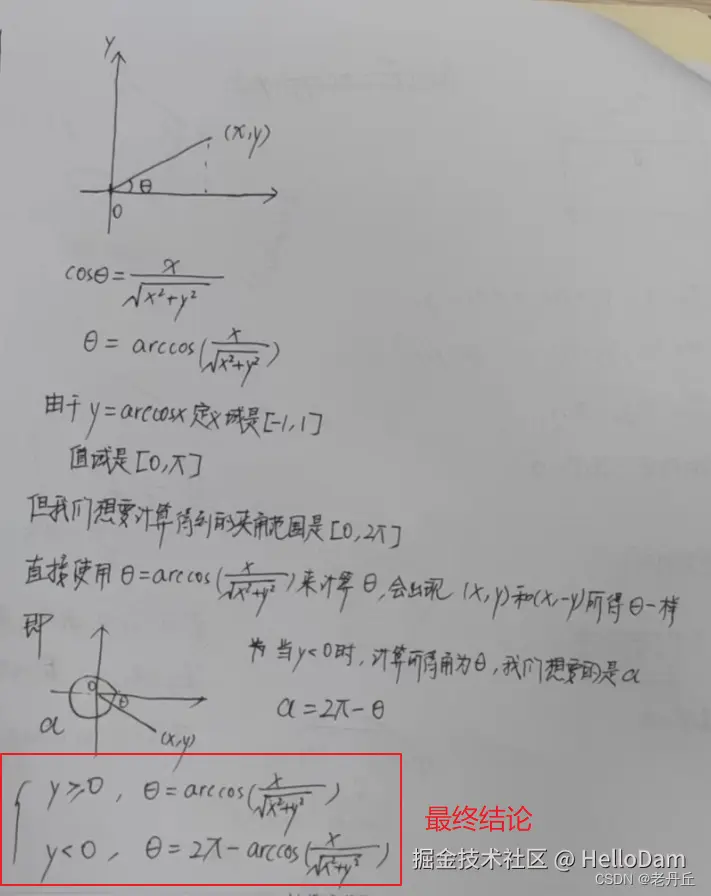 y
(x,y)
θ
0
cosθ=x/√(x²+y²)
θ = arccos(x/√(x²+y²))
由于 y=arccosx 定义域是[-1,1]
值域是[0,π]
但我们想要计算得到的夹角范围是[0,2π]
直接使用 θ=arccos(x/√(x²+y²))来计算θ,会出现 (x,y)和(x,-y)所得θ一样
即
当y<0时,计算所得角为θ,我们想要的是α
α=2π-θ
0
θ
α
(x,y)
{ y≥0, θ=arccos(x/√(x²+y²))
y<0, θ=2π-arccos(x/√(x²+y²))
最终结论
掘金技术社区 @ HelloDam
CSDN @老丹丘